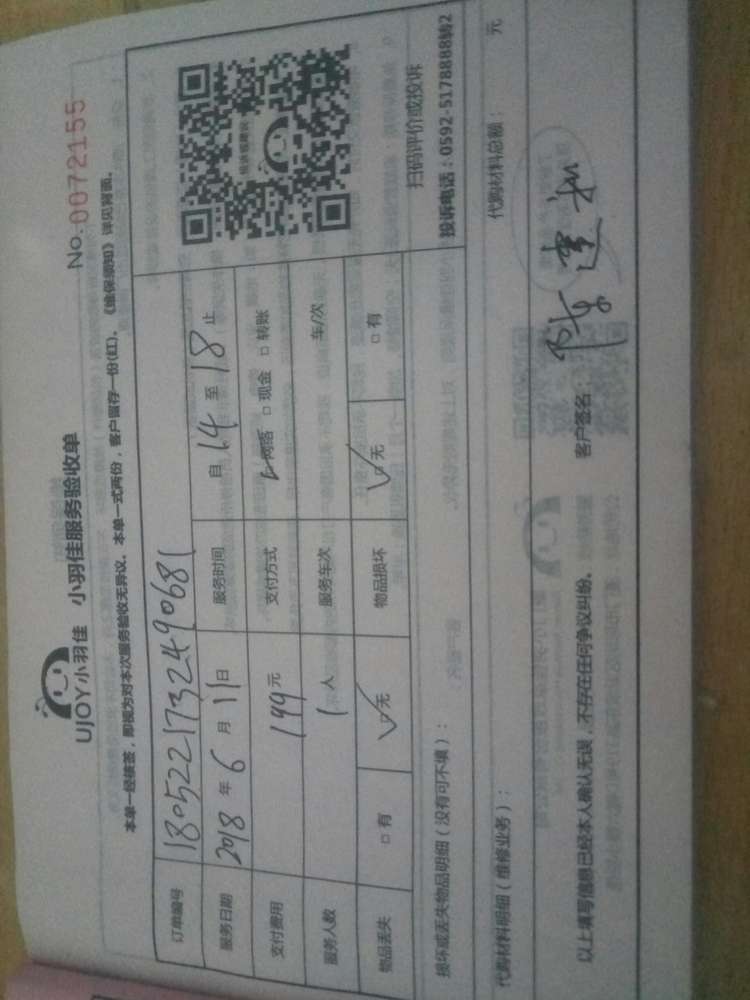 UJOY小羽佳 小羽佳服务验收单
No.0072155
本单一经核签，即视为对本次服务验收无异议。本单一式两份，客户留存一份(红)。《维保须知》详见背面。
订单编号 1805221732490681
服务日期 2018 年 6 月 11 日 服务时间 自 14 至 18 止
支付费用 199 元 支付方式 网络 □ 现金 □ 转账
服务人数 1 人 服务车次 车/次
物品丢失 □ 有 □ 无 物品损坏 □ 无 □ 有
投诉或建议
扫码评价或投诉
投诉电话：0592-5178888转2
损坏或丢失物品明细（没有可不填）：
代购材料明细（维修业务）： 代购材料总额： 元
以上填写信息已经本人确认无误，不存在任何争议纠纷。 客户签名：